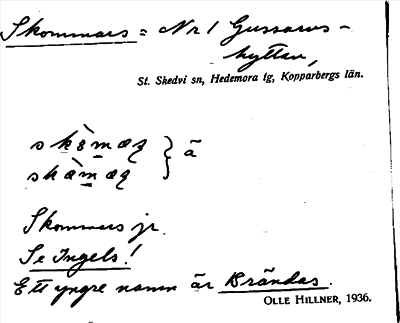 Skommars = Nr 1 Gussarvs-
hyttan,
St. Skedvi sn, Hedemora tg, Kopparbergs län.
} ä
Skommars jr.
Se Ingels!
Ett yngre namn är Brändas.
OLLE HILLNER, 1936.